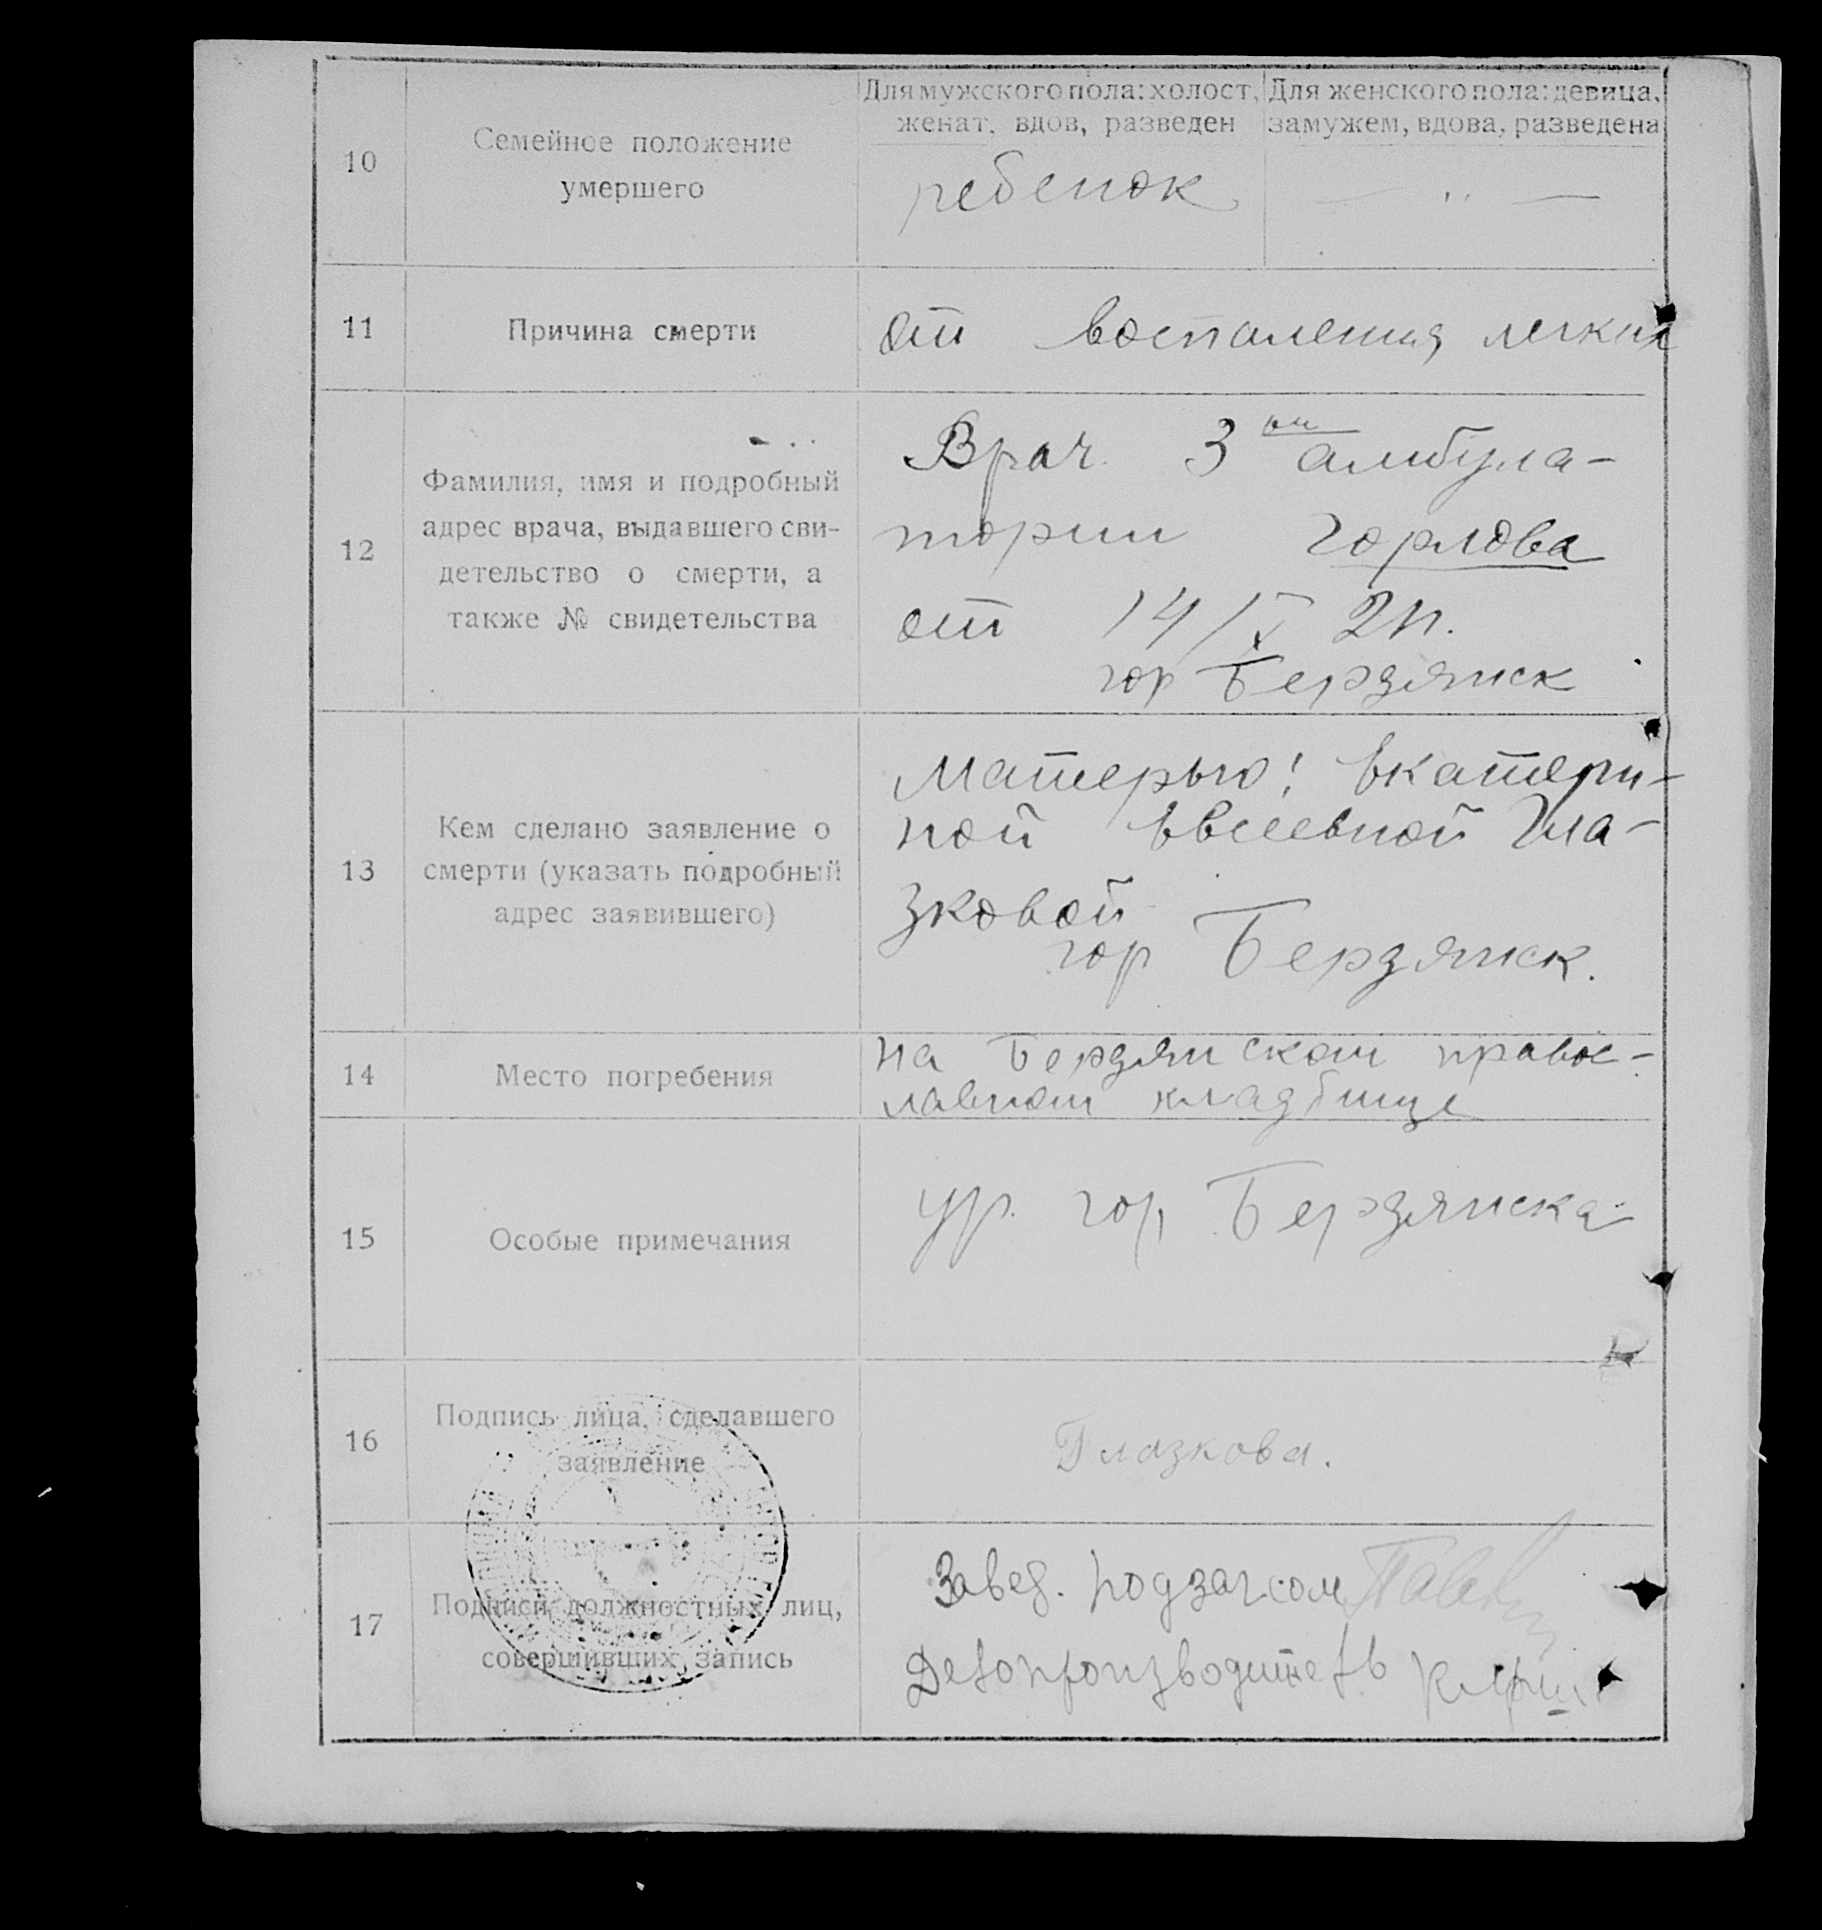 Для мужского пола: холост, женат, вдов, разведен
Для женского пола: девица, замужем, вдова, разведена
10
Семейное положение
умершего
ребенок
— " —
11
Причина смерти
от воспаления легких
12
Фамилия, имя и подробный
адрес врача, выдавшего сви-
детельство о смерти, а
также № свидетельства
Врач 3 ей амбула-
тории Горлова
от 14/X 2
гор Бердянск
13
Кем сделано заявление о
смерти (указать подробный
адрес заявившего)
Матерью: Екатери-
ной Евсеевной Гла-
зковой
гор Бердянск.
14
Место погребения
на Бердянском правос-
лавном кладбище
15
Особые примечания
ур. гор. Бердянска
16
Подпись лица, сделавшего
заявление
Глазкова.
17
Подписи должностных лиц,
совершивших запись
Завед. подзагсом
Делопроизводитель